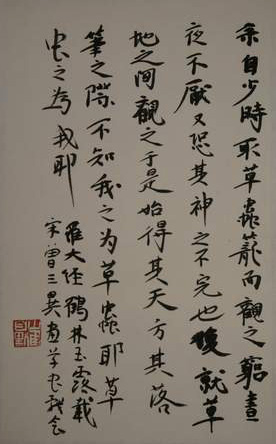 某自少時取草蟲籠而觀之窮晝
夜不厭又恐其神之不完也復就草
地之間觀之于是始得其天方其落
筆之際不知我之為草蟲耶草
虫之為我耶
羅大經鶴林玉露載
宋曾三異画草虫